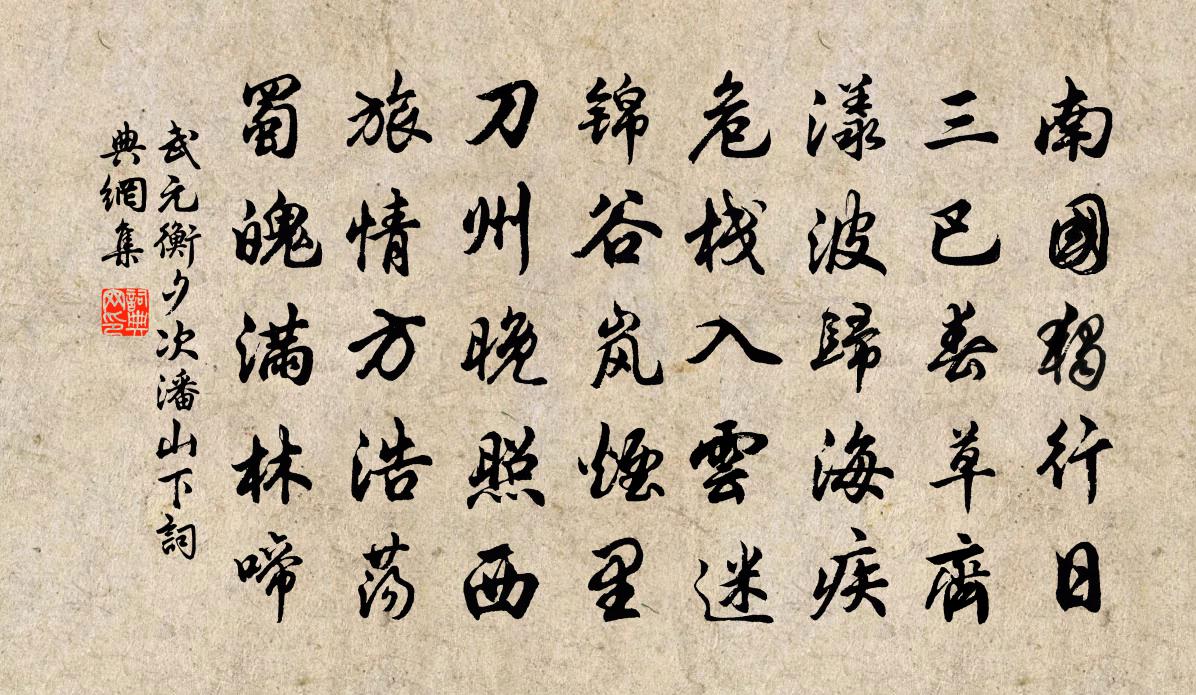 南國獨行日
三巴春草齊
漾波歸海疾
危栈入雲迷
锦谷岚煙里
刀州晚照西
旅情方浩荡
蜀魄满林啼
武元衡夕次潘山下詞
典網集
詞典
网印